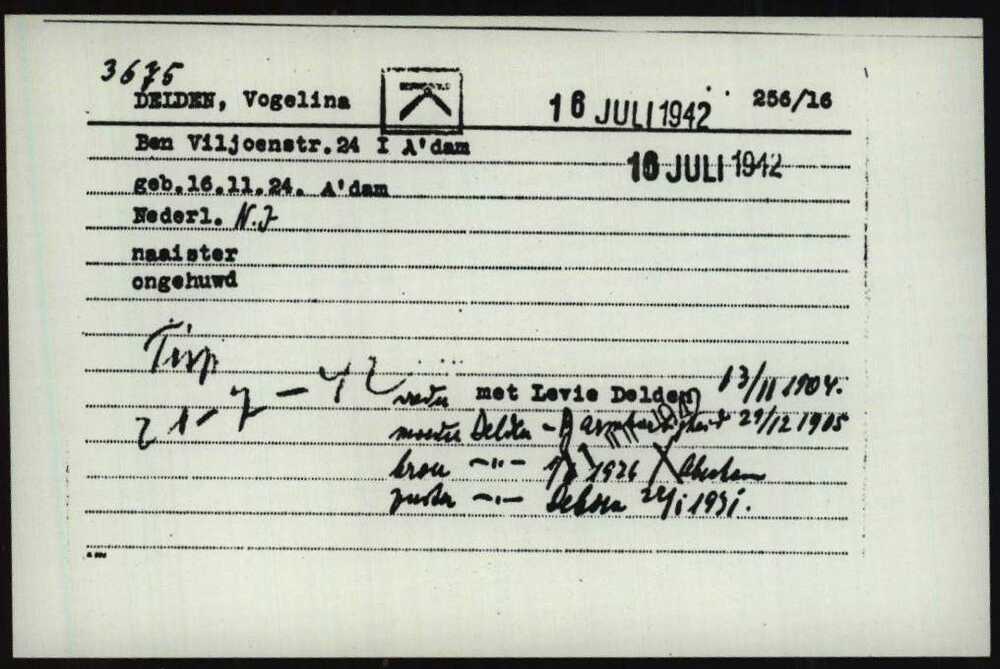 3675
DELDEN, Vogelina 16 JULI 1942 256/16
Ben Viljoenstr.24 I A'dam
16 JULI 1942
geb.16.11.24. A'dam
Nederl. N.J
naaister
ongehuwd
Tisp
21-7-42
vader met Levie Delden 13/11 1904.
moeder Delden - 29/12 1905
broer -"- 1926 Abraham
zuster -"- Debora 1931.